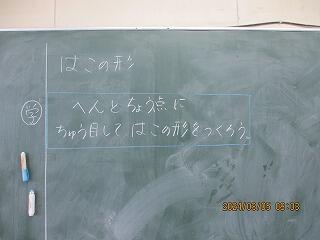 はこの形
学
へんとちょう点に
ちゅう目して はこの形をつくろう。
2021/03/05 09:03